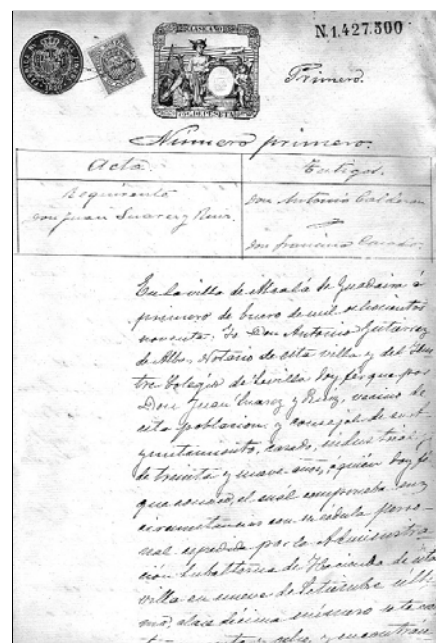 N.1.427.300
Primero.
Número primero.
Acta. Testigos.
Requirente Don Antonio Calderon
Don Juan Suarez y Ruiz.
Don Francisco Casado.
En la villa de Alcalá de Guadaira á
primero de Enero de mil ochocientos
noventa; Yo Don Antonio Gutierrez
de Alba, Notario de esta villa y del Ilus
tre Colegio de Sevilla doy fé: que por
Don Juan Suarez y Ruiz, vecino de
esta poblacion y concejal de su A
yuntamiento, casado, industrial,
de treinta y nueve años, á quien doy fé
que conozco, el cual comprueba sus
circunstancias con su cédula perso-
nal espedida por la Administra
ción Subalterna de Hacienda de esta
villa en nueve de Setiembre últi-
mo, clase décima, número